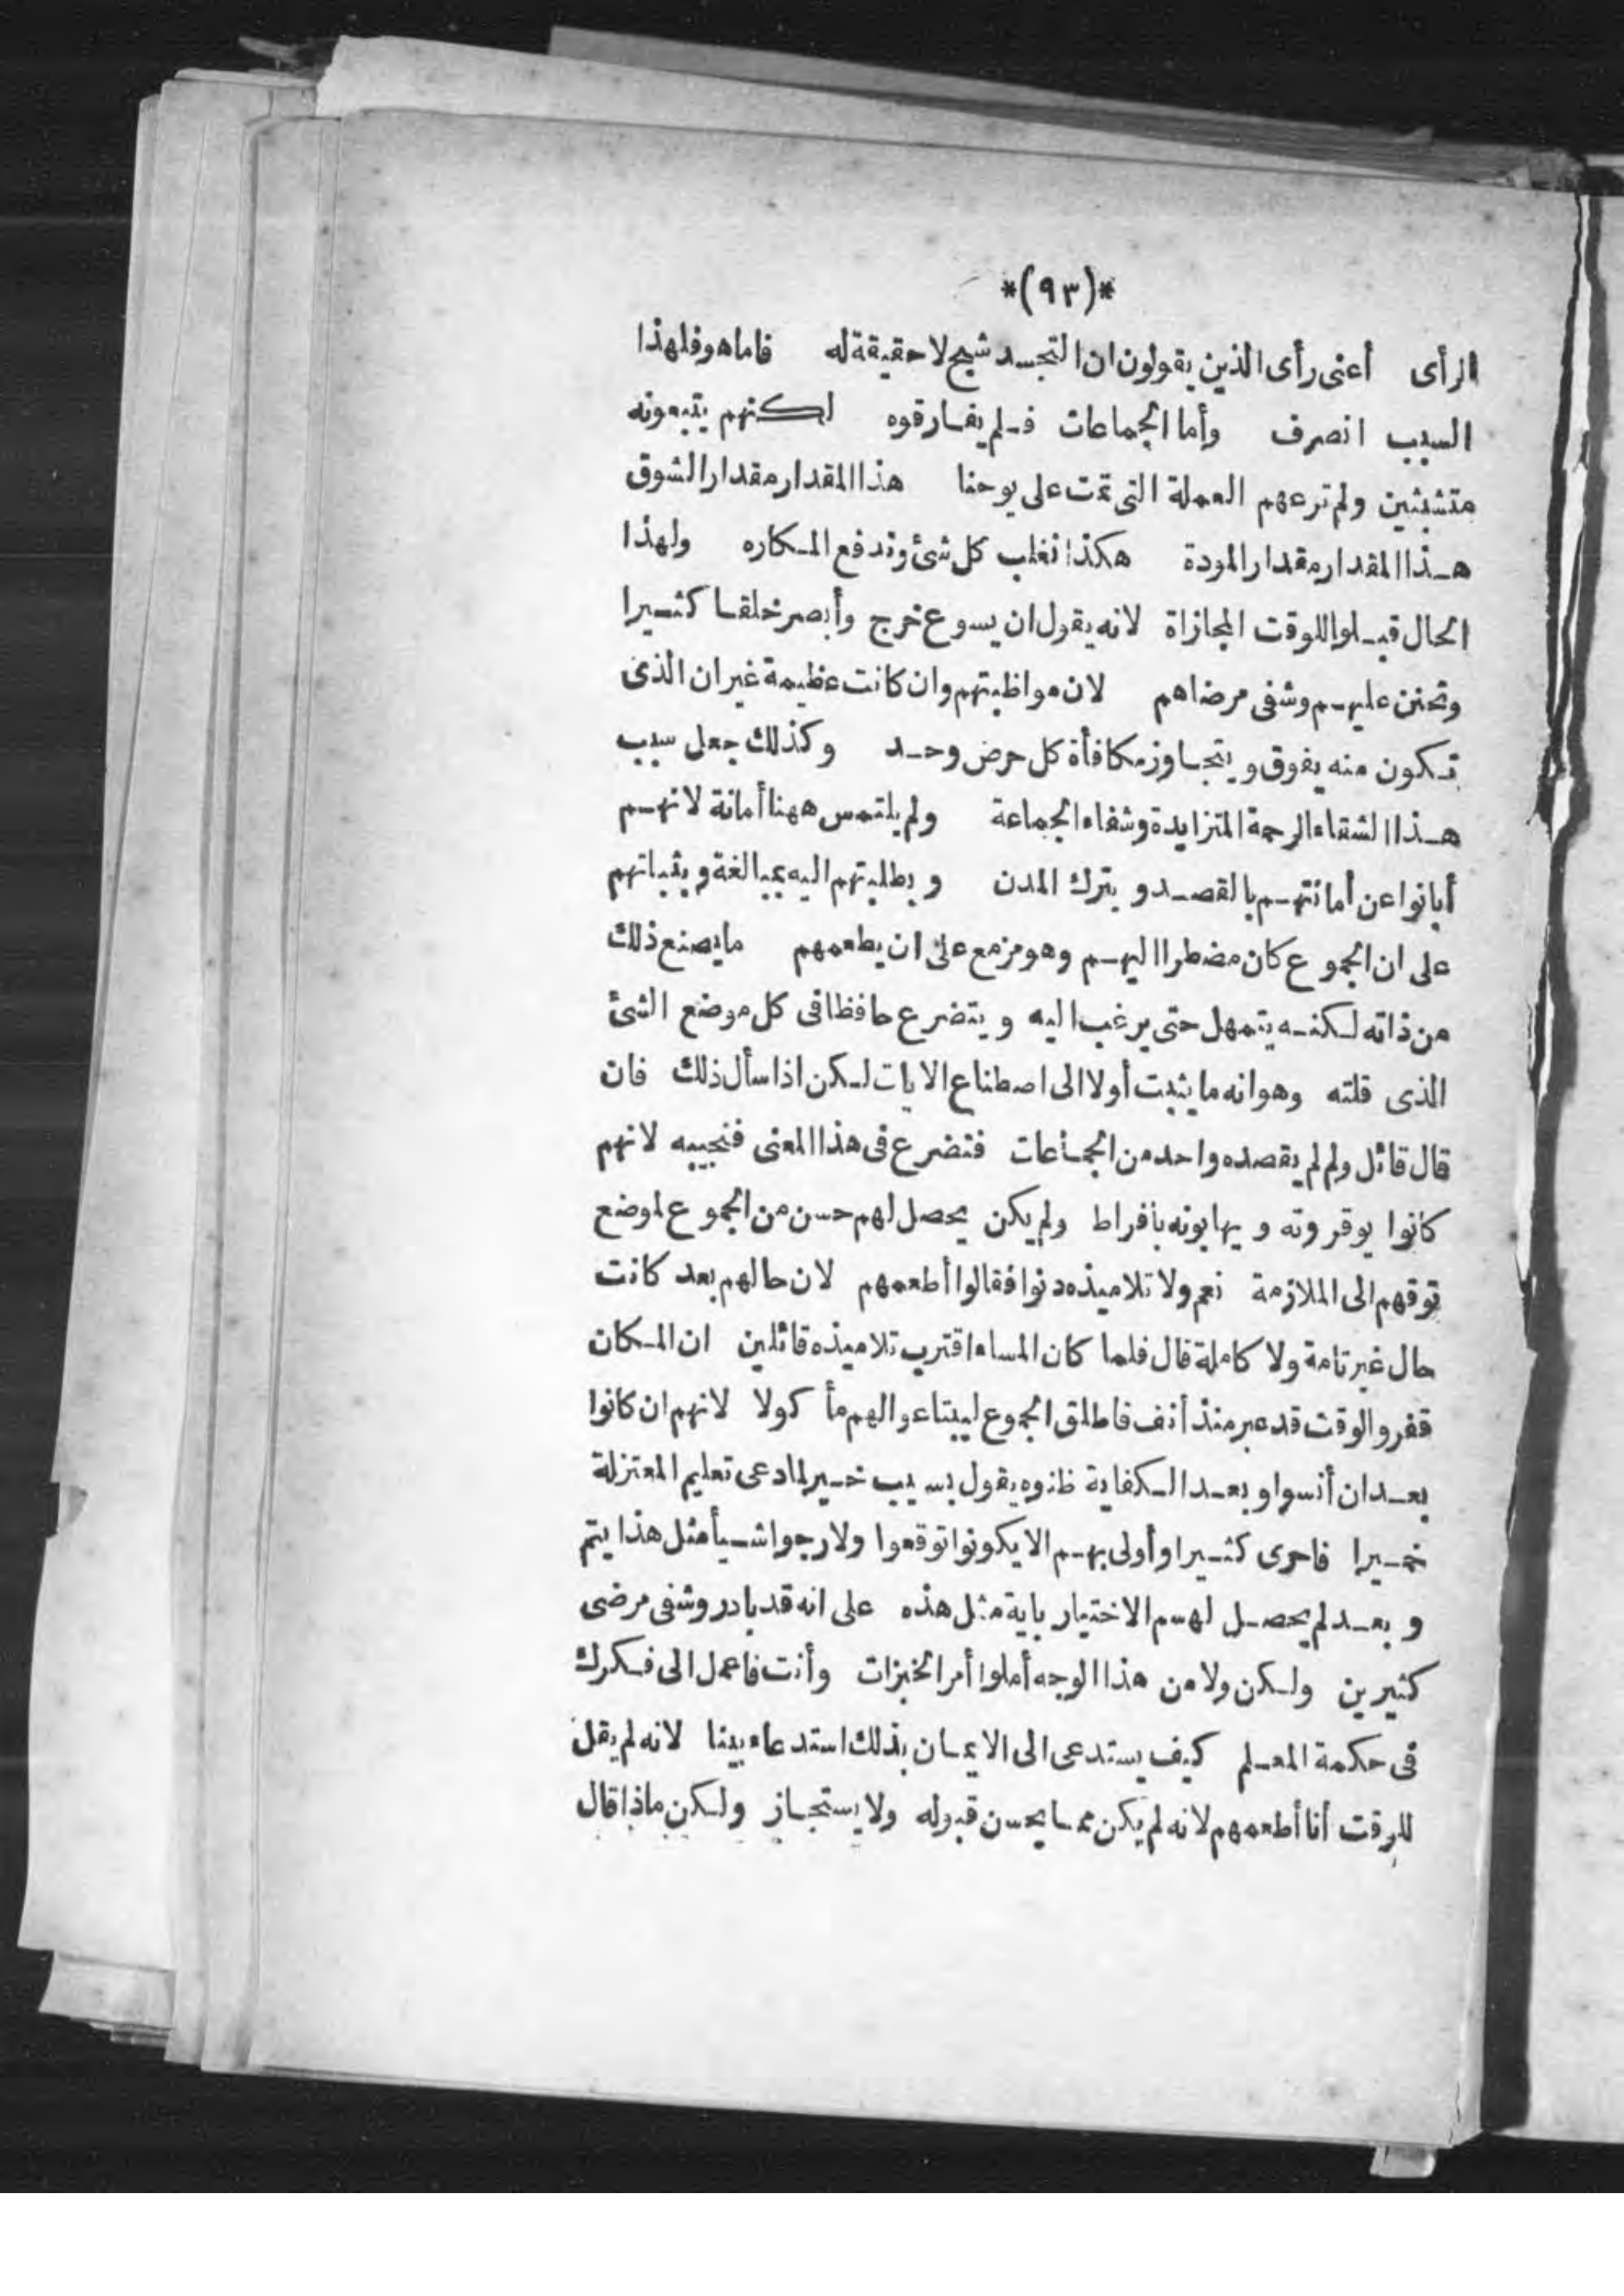 *(٩٣)*
الرأى أعنى رأى الذين يقولون ان التجسد شبح لا حقيقة له فاما هو فلهذا
السبب انصرف وأما الجماعات فلم يفارقوه لكنهم يتبعونه
متشبثين ولم ترعهم العملة التى تمت على يوحنا هذا المقدار مقدار الشوق
هذا المقدار مقدار المودة هكذا تغلب كل شئ وتدفع المكاره ولهذا
الحال قبلوا للوقت المجازاة لانه يقول ان يسوع خرج وأبصر خلقا كثيرا
وتحنن عليهم وشفى مرضاهم لان مواظبتهم وان كانت عظيمة غير ان الذى
تكون منه يفوق ويتجاوز مكافأة كل حرض وحد وكذلك جعل سبب
هذا الشقاء الرحمة المتزايدة وشفاء الجماعة ولم يلتمس ههنا أمانة لانهم
أبانوا عن أمانتهم بالقصد و بترك المدن و بطلبتهم اليه بمبالغة و بثباتهم
على ان الجوع كان مضطرا اليهم وهو مزمع على ان يطعمهم ما يصنع ذلك
من ذاته لكنه يتمهل حتى يرغب اليه و يتضرع حافظا فى كل موضع الشئ
الذى قلته وهو انه ما يثبت أولا الى اصطناع الايات لكن اذا سأل ذلك فان
قال قائل ولم لم يقصده واحد من الجماعات فتضرع فى هذا المعنى فنجيبه لانهم
كانوا يوقرونه و يهابونه بافراط ولم يكن يحصل لهم حسن من الجوع لموضع
توقهم الى الملازمة نعم ولا تلاميذه دنوا فقالوا أطعمهم لان حالهم بعد كانت
حال غير تامة ولا كاملة قال فلما كان المساء اقترب تلاميذه قائلين ان المكان
قفر والوقت قد عبر منذ أنف فاطلق الجموع ليبتاعوا لهم مأكولا لانهم ان كانوا
بعد ان أنسوا و بعد الكفاية ظنوه يقول بسبب خير لما دعى تعليم المعتزلة
خميرا فاحرى كثيرا وأولى بهم الا يكونوا توقعوا ولا رجوا شيأ مثل هذا يتم
و بعد لم يحصل لهم الاختيار باية مثل هذه على انه قد بادر وشفى مرضى
كثيرين ولكن ولا من هذا الوجه أملوا أمر الخبزات وأنت فاعمل الى فكرك
فى حكمة المعلم كيف يستدعى الى الايمان بذلك استدعاء بينا لانه لم يقل
للوقت أنا أطعمهم لانه لم يكن مما يحسن قبوله ولا يستجاز ولكن ماذا قال